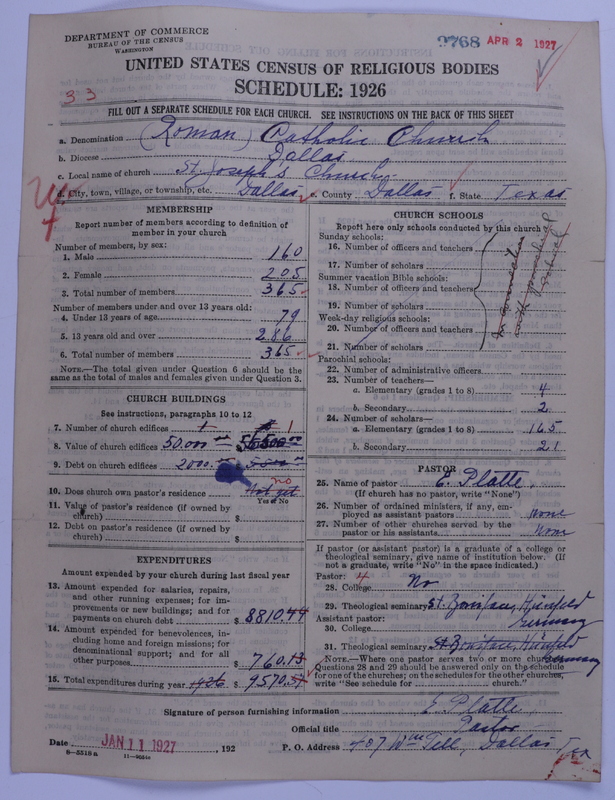 DEPARTMENT OF COMMERCE
BUREAU OF THE CENSUS
WASHINGTON
9768 APR 2 1927
UNITED STATES CENSUS OF RELIGIOUS BODIES
SCHEDULE: 1926
33
FILL OUT A SEPARATE SCHEDULE FOR EACH CHURCH. SEE INSTRUCTIONS ON THE BACK OF THIS SHEET
a. Denomination (Roman) Catholic Church
b. Diocese Dallas
c. Local name of church St. Joseph's Church
d. City, town, village, or township, etc. Dallas e. County Dallas f. State Texas
MEMBERSHIP
Report number of members according to definition of member in your church
Number of members, by sex:
1. Male 160
2. Female 205
3. Total number of members 365
Number of members under and over 13 years old:
4. Under 13 years of age 79
5. 13 years old and over 286
6. Total number of members 365
NOTE.—The total given under Question 6 should be same as the total of males and females given under Question 3.
CHURCH BUILDINGS
See instructions, paragraphs 10 to 12
7. Number of church edifices 1 1
8. Value of church edifices 50,000
9. Debt on church edifices 2000
10. Does church own pastor's residence no
Yes or No
11. Value of pastor's residence (if owned by church) $
12. Debt on pastor's residence (if owned by church) $
EXPENDITURES
Amount expended by your church during last fiscal year
13. Amount expended for salaries, repairs, and other running expenses; for improvements or new buildings; and for payments on church debt $ 8810.44
14. Amount expended for benevolences, including home and foreign missions; for denominational support; and for all other purposes $ 760.13
15. Total expenditures during year 1926 $ 9570.57
CHURCH SCHOOLS
Report here only schools conducted by this church
Sunday schools:
16. Number of officers and teachers
17. Number of scholars
Summer vacation Bible schools:
18. Number of officers and teachers
19. Number of scholars
Week-day religious schools:
20. Number of officers and teachers
21. Number of scholars
In connection with parochial school
Parochial schools:
22. Number of administrative officers
23. Number of teachers—
a. Elementary (grades 1 to 8) 4
b. Secondary 2
24. Number of scholars—
a. Elementary (grades 1 to 8) 165
b. Secondary 21
PASTOR
25. Name of pastor E. Platte
(If church has no pastor, write "None")
26. Number of ordained ministers, if any, employed as assistant pastors none
27. Number of other churches served by the pastor or his assistants none
If pastor (or assistant pastor) is a graduate of a college or theological seminary, give name of institution below. (If not a graduate, write "No" in the space indicated.)
Pastor:
28. College No
29. Theological seminary St. Boniface, Hünfeld Germany
Assistant pastor:
30. College
31. Theological seminary St. Boniface, Hünfeld Germany
NOTE.—Where one pastor serves two or more churches, Questions 28 and 29 should be answered only on the schedule for one of the churches; on the schedules for the other churches, write "See schedule for ........ church."
Signature of person furnishing information E. Platte
Official title Pastor
Date JAN 11 1927, 192 P. O. Address 407 Wm Tell, Dallas Tex
8—5318a 11—9054a